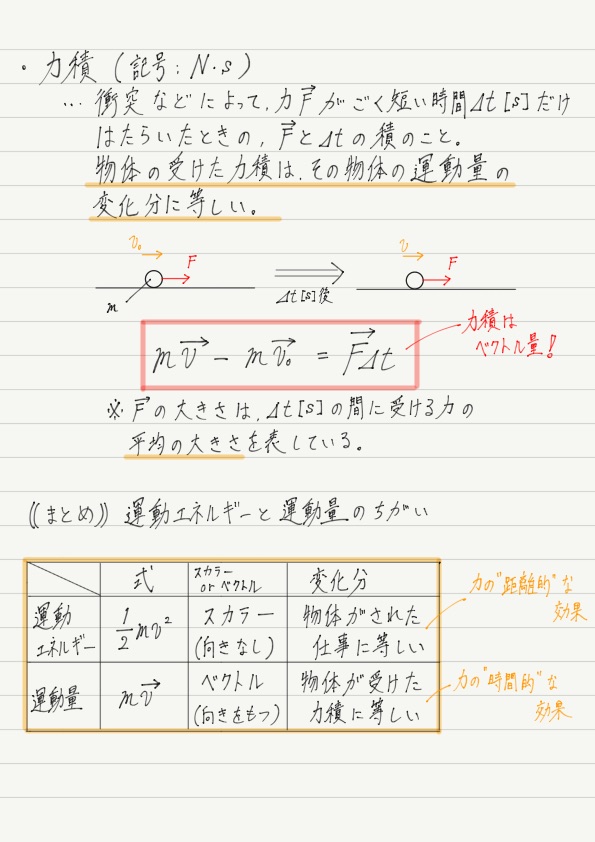 ・力積（記号：N・s）
… 衝突などによって、力F→がごく短い時間Δt[s]だけ
はたらいたときの、F→とΔtの積のこと。
物体の受けた力積は、その物体の運動量の
変化分に等しい。
v₀
F
m
Δt[s]後
v
F
mv→ − mv₀→ = F→Δt
力積は
ベクトル量！
※ F→の大きさは、Δt[s]の間に受ける力の
平均の大きさを表している。
《まとめ》 運動エネルギーと運動量のちがい
式
スカラー
or ベクトル
変化分
運動
エネルギー
1/2 mv²
スカラー
(向きなし)
物体がされた
仕事に等しい
力の"距離的"な
効果
運動量
mv→
ベクトル
(向きをもつ)
物体が受けた
力積に等しい
力の"時間的"な
効果